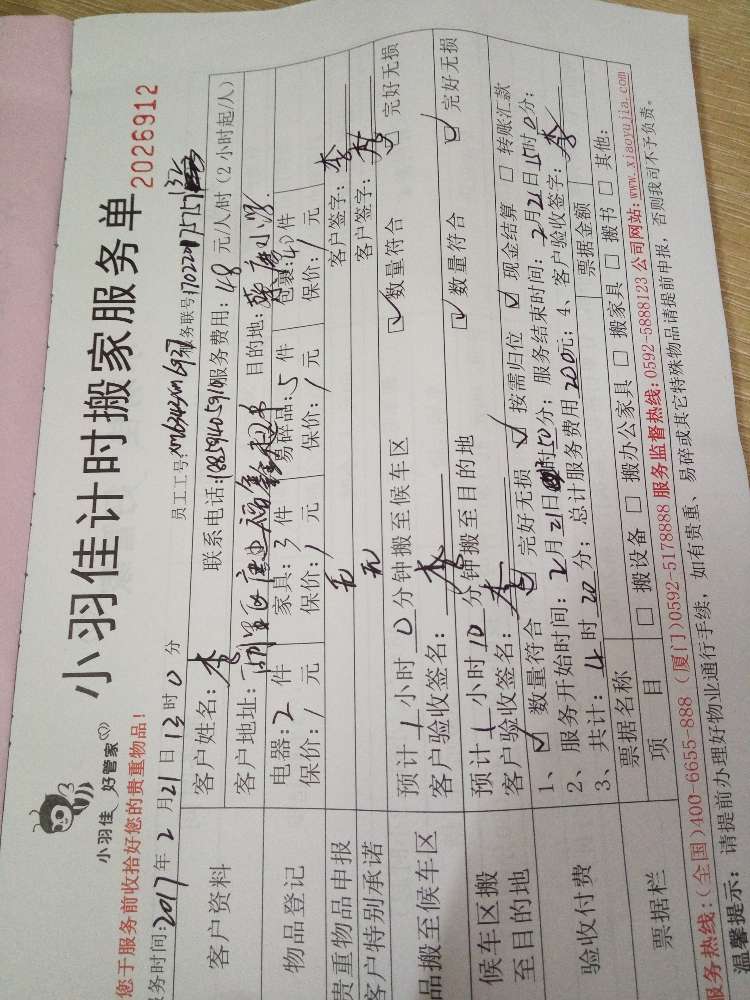 小羽佳计时搬家服务单
2026912
小羽佳 好管家
您于服务前收拾好您的贵重物品!
务时间:2017年2月21日13时0分
员工工号:
务联号:
客户资料
客户姓名:李
联系电话:
服务费用:48元/人/时(2小时起/人)
客户地址:
目的地:
物品登记
电器:2件 家具:3件 易碎品:5件 包裹:40件
保价:/元 保价:/元 保价:/元 保价:/元
贵重物品申报 无 客户签字:李
客户特别承诺 无 客户签字:李
品搬至候车区
预计1小时0分钟搬至候车区 ☑数量符合 ☑完好无损
客户验收签名:李
候车区搬至目的地
预计1小时10分钟搬至目的地 ☑数量符合 ☑完好无损
客户验收签名:李
验收付费
1、☑数量符合 ☑完好无损 ☑按需归位 ☑现金结算 □转账汇款
2、服务开始时间:2月21日 时50分;服务结束时间:2月21日15时0分;
3、共计:4时20分;总计服务费用200元;4、客户验收签字:李
票据栏
票据名称 票据金额
项目 □搬设备 □搬办公家具 □搬家具 □搬书 □其他:
服务热线:(全国)400-6655-888 (厦门)0592-5178888 服务监督热线:0592-5888123 公司网站:www.xiaoyujia.com
温馨提示:请提前办理好物业通行手续,如有贵重、易碎或其它特殊物品请提前申报,否则我司不予负责。